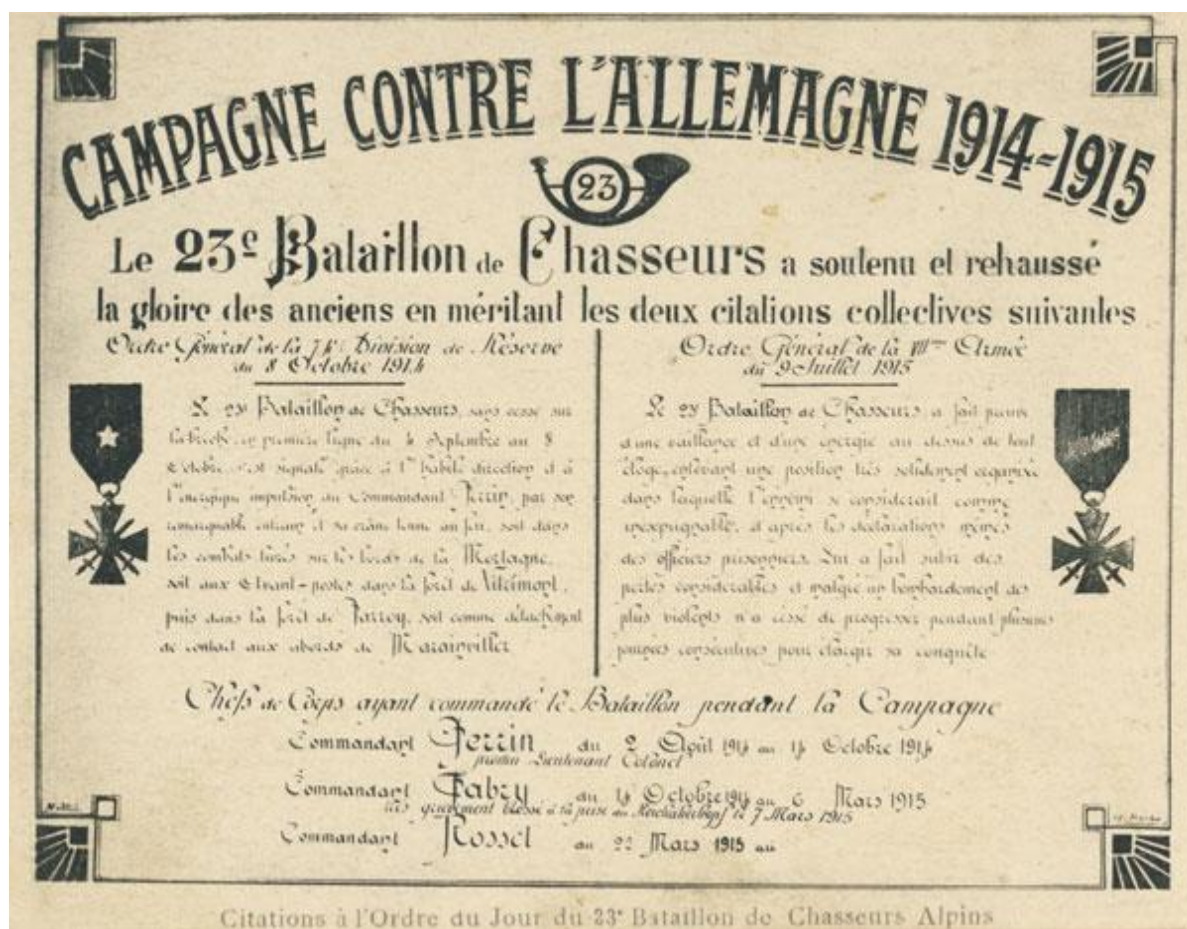 CAMPAGNE CONTRE L'ALLEMAGNE 1914-1915
23
Le 23e Bataillon de Chasseurs a soutenu et rehaussé
la gloire des anciens en méritant les deux citations collectives suivantes
Ordre Général de la 74e Division de Réserve
du 8 Octobre 1914
Le 23e Bataillon de Chasseurs, sans cesse sur
la brèche, en première ligne du 4 Septembre au 8
Octobre s'est signalé grâce à l'habile direction et à
l'énergique impulsion du Commandant Perrin, par son
remarquable entrain et sa crâne tenue au feu, soit dans
les combats livrés sur les bords de la Mortagne,
soit aux Avant-postes dans la forêt de Vitrimont,
puis dans la forêt de Parroy, soit comme détachement
de contact aux abords de Marainviller
Ordre Général de la VIIme Armée
du 9 Juillet 1915
Le 23e Bataillon de Chasseurs a fait preuve
d'une vaillance et d'une énergie au dessus de tout
éloge, enlevant une position très solidement organisée
dans laquelle l'ennemi se considérait comme
inexpugnable, d'après les déclarations mêmes
des officiers prisonniers. Lui a fait subir des
pertes considérables et malgré un bombardement des
plus violents n'a cessé de progresser pendant plusieurs
journées consécutives pour élargir sa conquête
Chefs de Corps ayant commandé le Bataillon pendant la Campagne
Commandant Perrin du 2 Août 1914 au 14 Octobre 1914
promu Lieutenant Colonel
Commandant Fabry du 14 Octobre 1914 au 6 Mars 1915
très grièvement blessé à la prise du Reichackerkopf le 7 Mars 1915
Commandant Rosset du 22 Mars 1915 au
Citations à l'Ordre du Jour du 23e Bataillon de Chasseurs Alpins